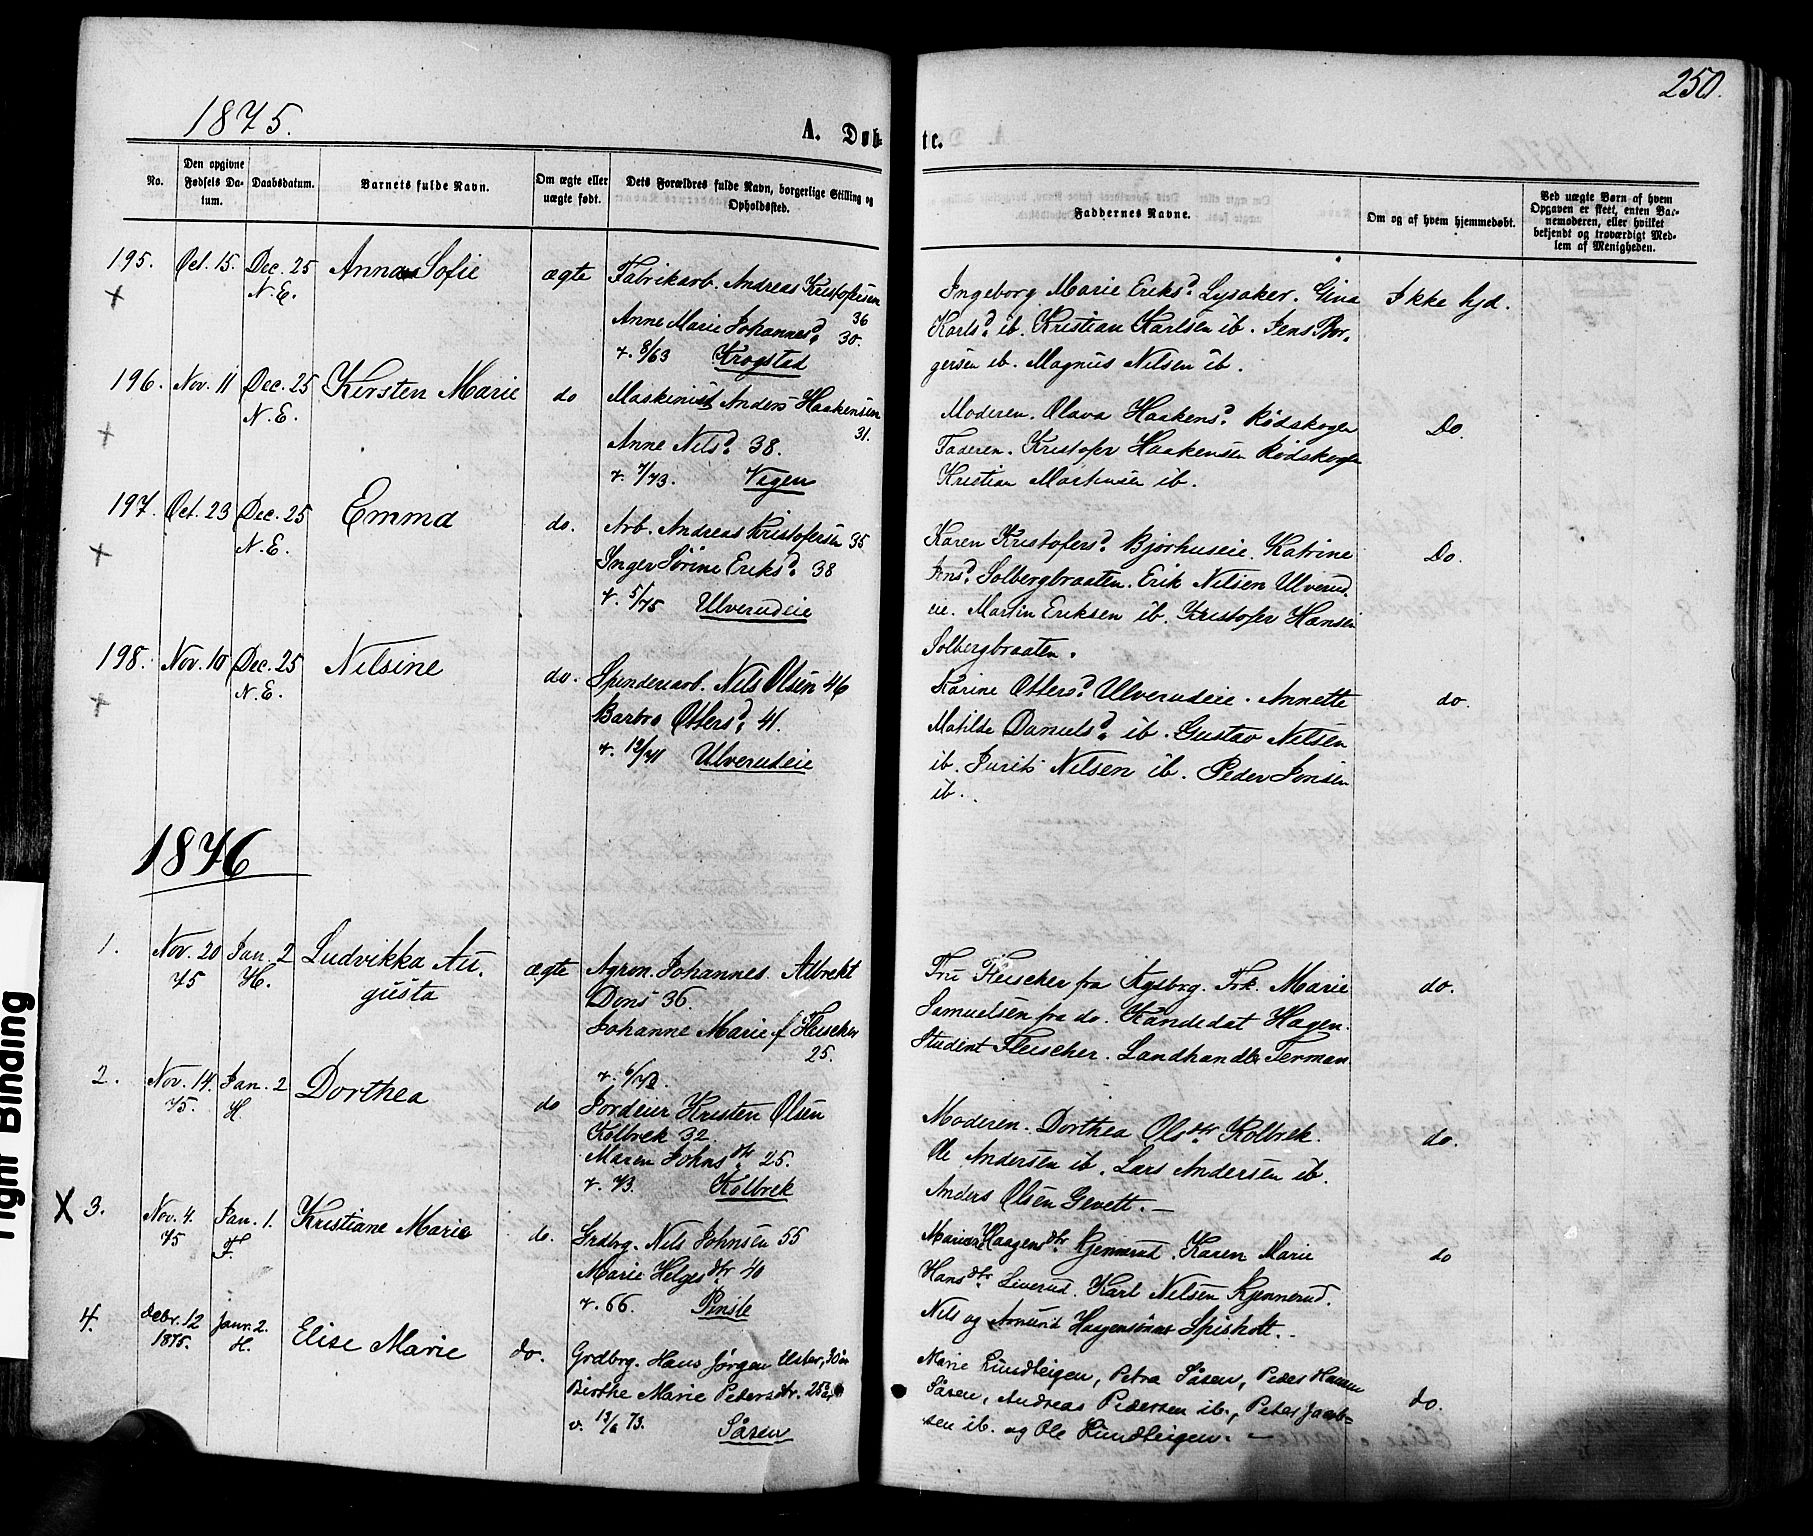 250.
1875.
A. Døb-
te.
No.
Den opgivne Fødsels Da-tum.
Daabsdatum.
Barnets fulde Navn.
Om ægte eller uægte født.
Dets Forældres fulde Navn, borgerlige Stilling og Opholdssted.
Faddernes Navne.
Om og af hvem hjemmedøbt.
Ved uægte Børn af hvem Opgaven er skeet, enten Bar-nemoderen, eller hvilket bekjendt og troværdigt Med-lem af Menigheden.
195. Oct. 15. Dec. 25 Anna Sofie ægte Fabrikarb. Andreas Kristofersen
N.E. 36
Anne Marie Johannesd. 30.
v. 8/63 Krogstad
Ingeborg Marie Eriksd. Lysaker. Gina
Karlsd. ib. Kristian Karlsen ib. Jens Bor-
gersen ib. Magnus Nilsen ib.
Ikke hjd.
196. Nov. 11 Dec. 25 Kirsten Marie do Maskinist Anders Haakensen
N.E. 31.
Anne Nilsd. 38.
v. 7/73. Vegen
Moderen. Olava Haakensd. Rødskogen
Faderen. Kristofer Haakensen Rødskogen
Kristian Martinsen ib.
Do.
197. Oct. 23 Dec. 25 Emma do. Arb. Andreas Kristofersen 35
N.E.
Inger Sørine Eriksd. 38
v. 5/75 Ulverudeie
Karen Kristofersd. Bjørhuseie. Katrine
Jensd. Solbergbraaten. Erik Nilsen Ulverud-
eie. Martin Eriksen ib. Kristofer Hansen
Solbergbraaten.
Do.
198. Nov. 10 Dec. 25 Nilsine do. Spinderiarb. Nils Olsen 46
N.E.
Barbro Ottersd. 41.
v. 12/71 Ulverudeie
Karine Ottersd. Ulverudeie. Annette
Matilde Danielsd. ib. Gustav Nilsen
ib. Nilsen ib. Peder Jonsen
ib.
do.
1876
1. Nov. 20 Jan. 2 Ludvikka Au-
75 H. gusta
ægte Agron. Johannes Albrekt
Dons 36.
Johanne Marie f Fleischer
25.
v. 6/73.
Fru Fleischer fra Kgsbrg. Frk. Marie
Samuelsen fra do. Kandedat Hagen.
Student Fleischer. Landhandler Terman
do.
2. Nov. 14. Jan. 2 Dorthea do Jordeier Kristen Olsen
75. H
Kolbrek 32.
Maren Johnsdtr. 25.
v. 73. Kolbrek
Moderen. Dorthea Olsdtr. Kolbrek.
Ole Andersen ib. Lars Andersen ib.
Anders Olsen Gevelt.
do.
X 3. Nov. 4. Jan. 1. Kristiane Marie do. Grdbrg. Nils Johnsen 55
75 F.
Marie Helgesdtr 40
v. 66. Penste
Haagensdtr. Kjennerud. Karen Marie
Hansdtr Liverud. Karl Nilsen Kjennerud.
Nils og Amund Haagensønner Spisholt.
do
4. Debr. 12 Janr. 2. Elise Marie do. Grdbrg. Hans Jørgen Ulsker, 30
1875. H.
Birthe Marie Petersdtr. 25
v. 13/6 73. Såsen
Marie Lundteigen, Petra Såsen, Peder Hansen
Såsen, Andreas Pedersen ib., Peter Jacob-
sen ib. og Ole Lundteigen.
do.
Tight Binding